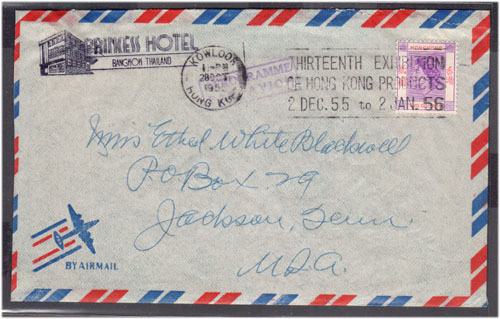 PRINCESS HOTEL
BANGKOK THAILAND
KOWLOON
28 OC
195
HONG KO
THIRTEENTH EXHIBITION
OF HONG KONG PRODUCTS
2 DEC. 55 to 2 JAN. 56
HONG KONG
Mrs Ethel White Blackwell
PO Box 29
Jackson, Tenn
USA.
BY AIRMAIL